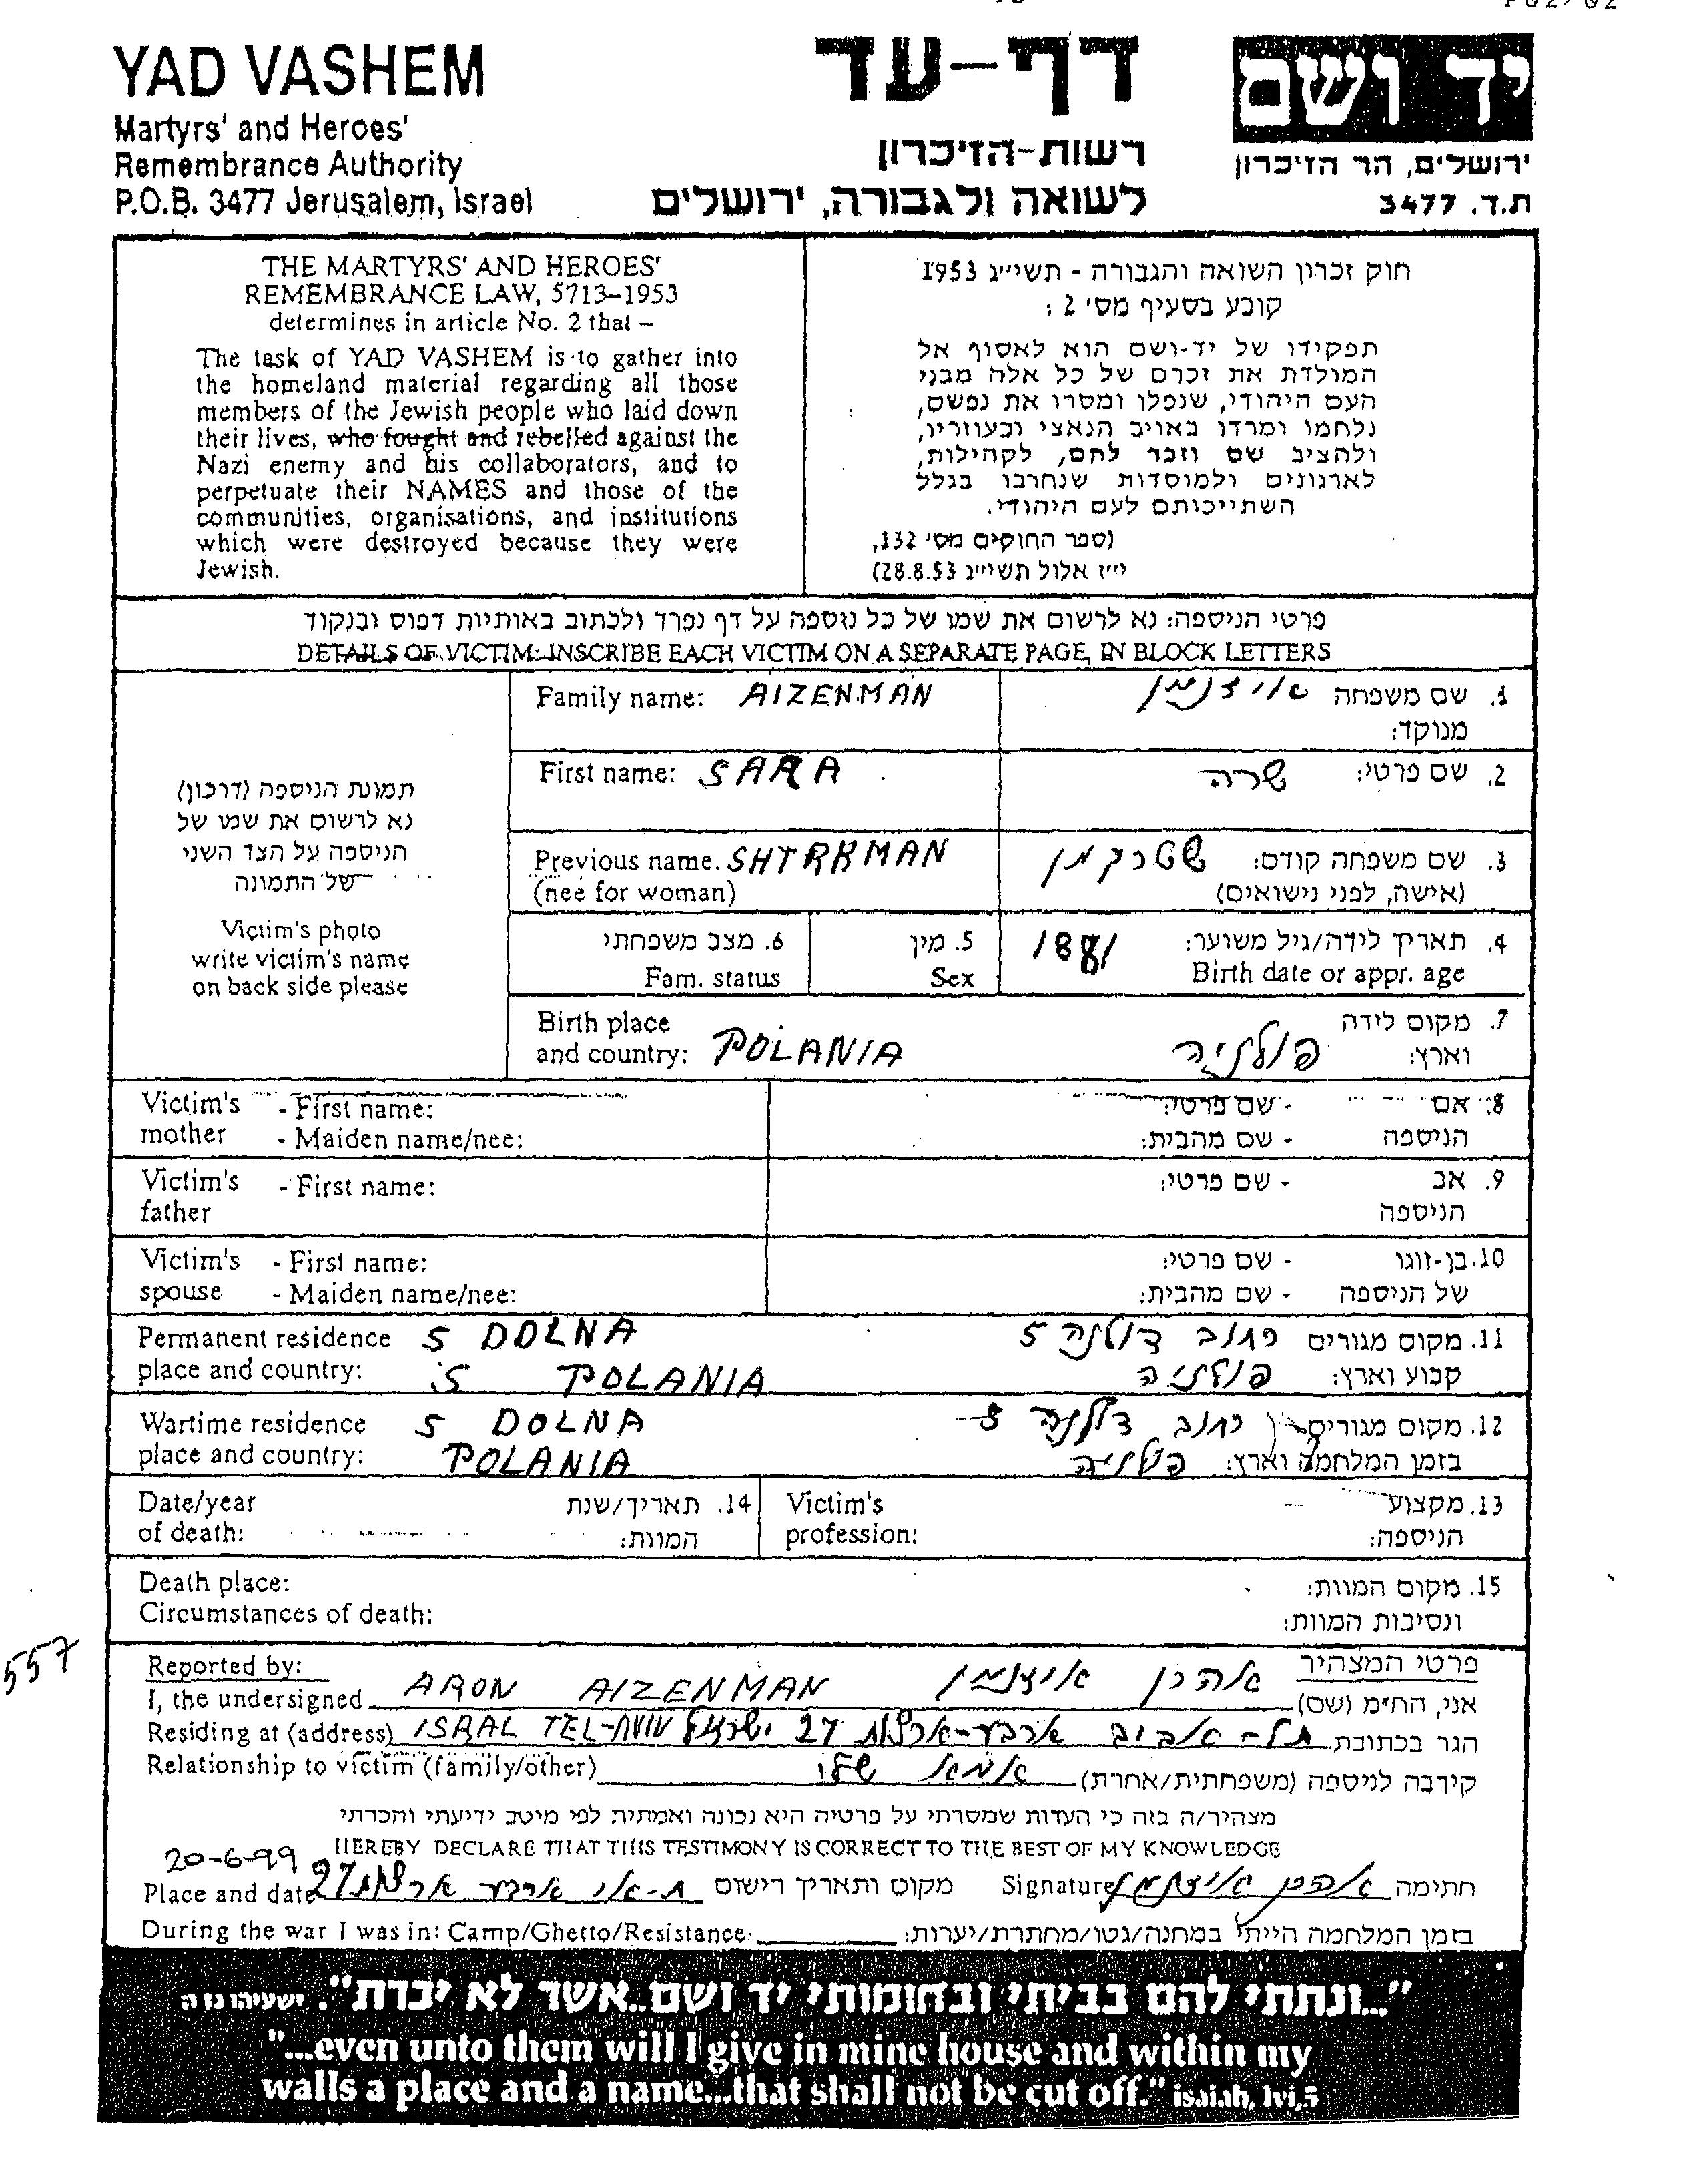 YAD VASHEM
Martyrs' and Heroes'
Remembrance Authority
P.O.B. 3477 Jerusalem, Israel
דף-עד
רשות-הזיכרון
לשואה ולגבורה, ירושלים
יד ושם
ירושלים, הר הזיכרון
ת.ד. 3477
THE MARTYRS' AND HEROES'
REMEMBRANCE LAW, 5713–1953
determines in article No. 2 that –
The task of YAD VASHEM is to gather into
the homeland material regarding all those
members of the Jewish people who laid down
their lives, who fought and rebelled against the
Nazi enemy and his collaborators, and to
perpetuate their NAMES and those of the
communities, organisations, and institutions
which were destroyed because they were
Jewish.
חוק זכרון השואה והגבורה - תשי״ג 1953
קובע בסעיף מס׳ 2 :
תפקידו של יד-ושם הוא לאסוף אל
המולדת את זכרם של כל אלה מבני
העם היהודי, שנפלו ומסרו את נפשם,
נלחמו ומרדו באויב הנאצי ובעוזריו,
ולהציב שם וזכר להם, לקהילות,
לארגונים ולמוסדות שנחרבו בגלל
השתייכותם לעם היהודי.
(ספר החוקים מס׳ 132,
י״ז אלול תשי״ג 28.8.53)
פרטי הניספה: נא לרשום את שמו של כל נוספה על דף נפרד ולכתוב באותיות דפוס ובנקוד
DETAILS OF VICTIM: INSCRIBE EACH VICTIM ON A SEPARATE PAGE, IN BLOCK LETTERS
תמונת הניספה (דרכון)
נא לרשום את שמו של
הניספה על הצד השני
של התמונה
Victim's photo
write victim's name
on back side please
Family name: AIZENMAN
1. שם משפחה איזנמן
מנוקד:
First name: SARA
2. שם פרטי: שרה
Previous name. SHTRKMAN
(nee for woman)
3. שם משפחה קודם: שטרקמן
(אישה, לפני נישואים)
4. תאריך לידה/גיל משוער: 1881
Birth date or appr. age
5. מין
Sex
6. מצב משפחתי
Fam. status
Birth place
and country: POLANIA
7. מקום לידה
וארץ: פולניה
Victim's - First name:
mother - Maiden name/nee:
8. אם - שם פרטי:
הניספה - שם מהבית:
Victim's - First name:
father
9. אב - שם פרטי:
הניספה
Victim's - First name:
spouse - Maiden name/nee:
10. בן-זוגו - שם פרטי:
של הניספה - שם מהבית:
Permanent residence 5 DOLNA
place and country: 5 POLANIA
11. מקום מגורים רחוב דולנה 5
קבוע וארץ: פולניה
Wartime residence 5 DOLNA
place and country: POLANIA
12. מקום מגורים רחוב דולנה 5
בזמן המלחמה וארץ: פולניה
Date/year
of death:
14. תאריך/שנת
המוות:
Victim's
profession:
13. מקצוע
הניספה:
Death place:
Circumstances of death:
15. מקום המוות:
ונסיבות המוות:
557
Reported by:
פרטי המצהיר
I, the undersigned ARON AIZENMAN אהרן איזנמן אני, הח״מ (שם)
Residing at (address) ISRAL TEL-AVIV הגר בכתובת תל-אביב ארבע-ארצות 27 ישראל
Relationship to victim (family/other) אמא שלי קירבה לניספה (משפחתית/אחרת)
מצהיר/ה בזה כי העדות שמסרתי על פרטיה היא נכונה ואמתית לפי מיטב ידיעתי והכרתי
HEREBY DECLARE THAT THIS TESTIMONY IS CORRECT TO THE BEST OF MY KNOWLEDGE
20-6-99
Place and date מקום ותאריך רישום ת-א ארבע ארצות 27 Signature חתימה אהרן איזנמן
During the war I was in: Camp/Ghetto/Resistance: בזמן המלחמה הייתי במחנה/גטו/מחתרת/יערות:
"...ונתתי להם בביתי ובחומותי יד ושם..אשר לא יכרת". ישעיהו נו ה
"...even unto them will I give in mine house and within my
walls a place and a name...that shall not be cut off." isaiah, lvi,5